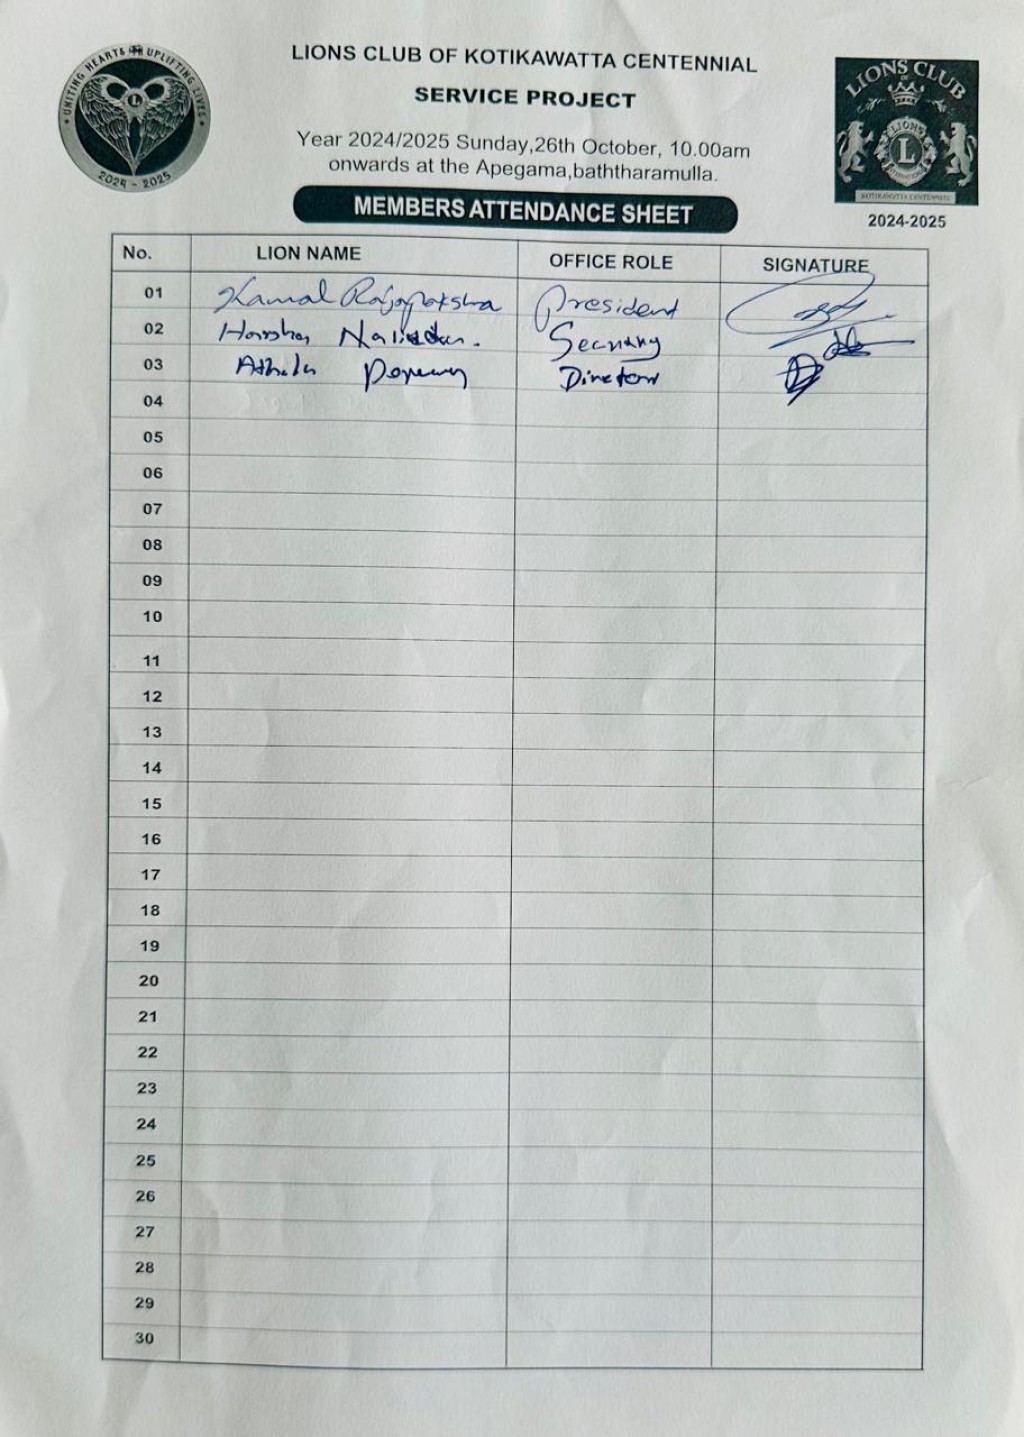 UNITING HEARTS & UPLIFTING LIVES
L
2024 - 2025
LIONS CLUB OF KOTIKAWATTA CENTENNIAL
SERVICE PROJECT
Year 2024/2025 Sunday,26th October, 10.00am
onwards at the Apegama,baththaramulla.
MEMBERS ATTENDANCE SHEET
LIONS CLUB
OF
LIONS
L
INTERNATIONAL
KOTIKAWATTA CENTENNIAL
2024-2025
No. LION NAME OFFICE ROLE SIGNATURE
01 Kamal Rajapaksha President
02 Harsha Secretary
03 Director
04
05
06
07
08
09
10
11
12
13
14
15
16
17
18
19
20
21
22
23
24
25
26
27
28
29
30